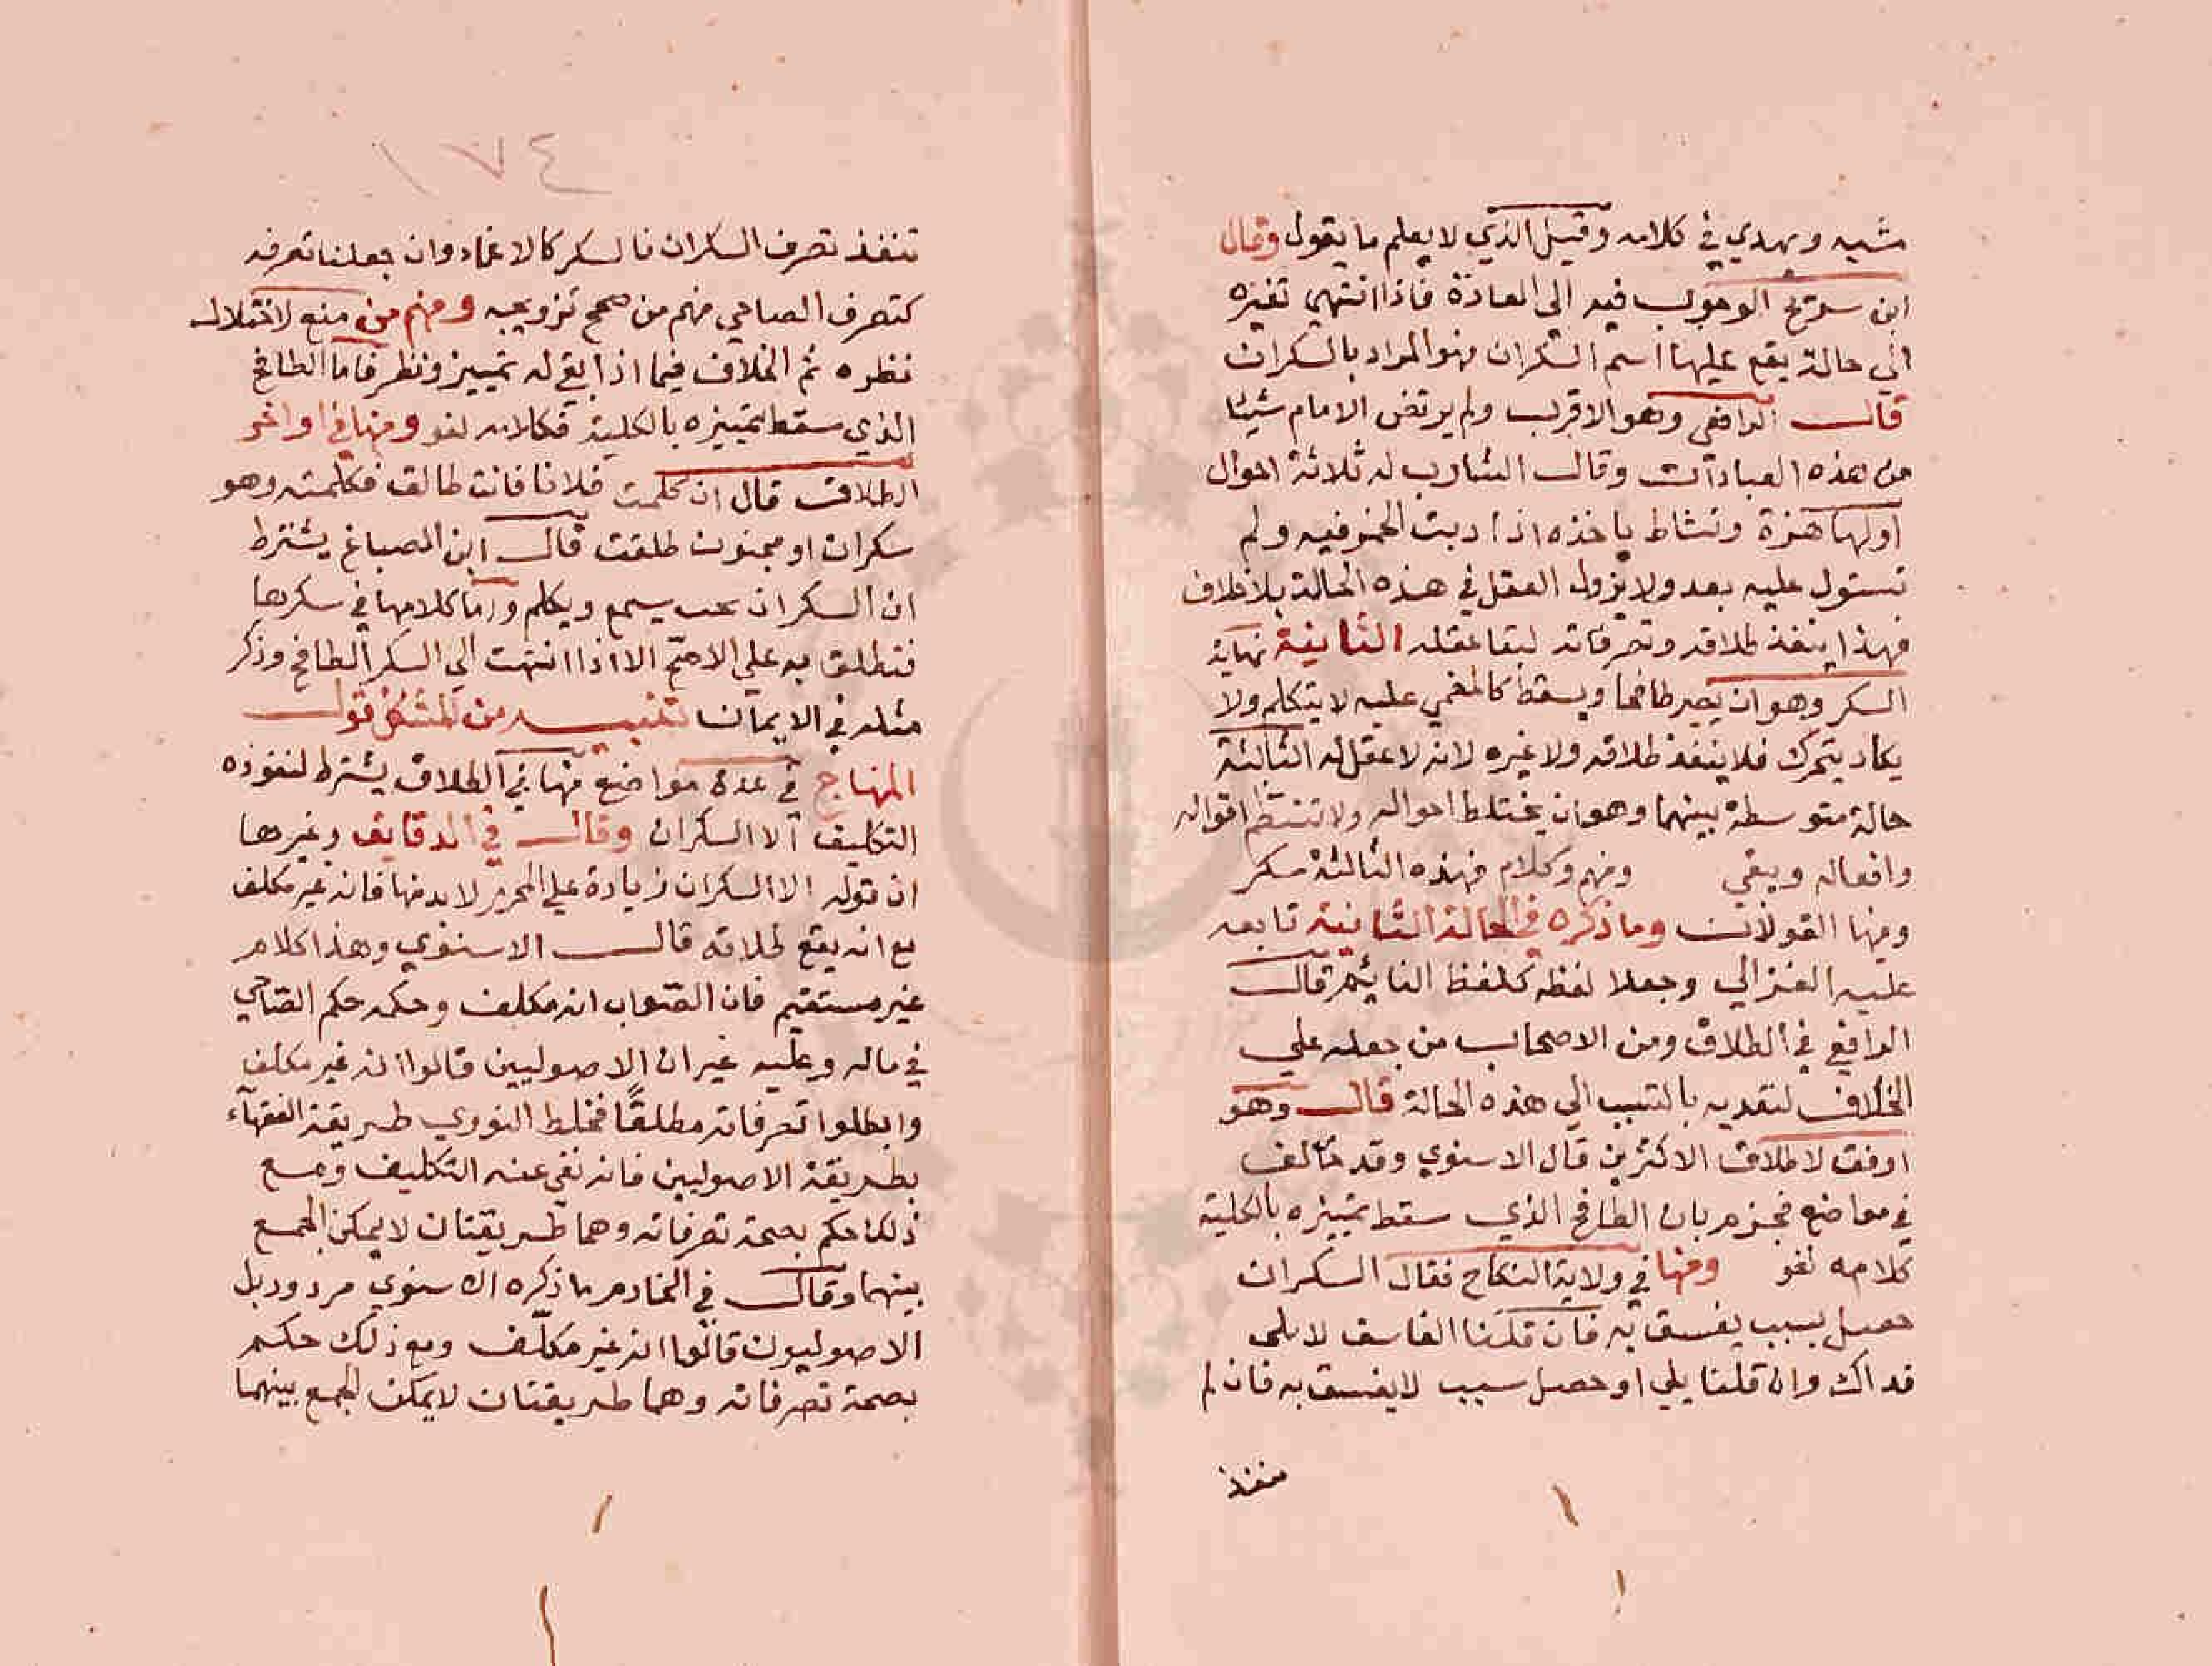 مشيه ويهدي في كلامه وقيل الذي لا يعلم ما يقول وقال
ابن سريج الرجوع فيه الى العادة فاذا انتهى تغيره
الى حالة يقع عليها اسم السكران فهو المراد بالسكران
قال الرافعي وهو الاقرب ولم يرتض الامام شيئا
من هذه العبارات وقال الشارب له ثلاثة احوال
اولها هزة ونشاط ياخذه اذا دبت الخمر فيه ولم
تستول عليه بعد ولا يزول العقل في هذه الحالة بلا خلاف
فهذا ينفذ طلاقه وتصرفاته لبقا عقله الثانية نهاية
السكر وهو ان يصير طافحا ويسقط كالمغمي عليه لا يتكلم ولا
يكاد يتحرك فلا ينفذ طلاقه ولا غيره لانه لا عقل له الثالثة
حالة متوسطة بينهما وهو ان يختلط احواله ولا تنتظم اقواله
وافعاله ويبقى وفهم وكلام فهذه الثالثة سكر
وفيها القولان وما ذكره في الحالة الثانية تابعه
عليه الغزالي وجعلا لفظه كلفظ النائم قال
الرافعي في الطلاق ومن الاصحاب من جعله على
الخلاف لتعديه بالتسبب الى هذه الحالة قال وهو
اوفق لاطلاق الاكثرين قال الاسنوي وقد خالف
في مواضع فجزم بان الطافح الذي سقط تمييزه بالكلية
كلامه لغو ومنها في ولاية النكاح فقال السكران
حصل بسبب يفسق به فان قلنا الفاسق لا يلى
فداك وان قلنا يلي او حصل سبب لا يفسق به فان لم
تنفذ
٤٧١
تنفذ تصرف السكران فالسكر كالاغماء وان جعلنا تصرفه
كتصرف الصاحي فمنهم من صحح تزويجه ومنهم من منع لاختلال
نظره ثم الخلاف فيما اذا بقي له تمييز ونظر فاما الطافح
الذي سقط تمييزه بالكلية فكلامه لغو ومنها في اواخر
الطلاق قال ان كلمت فلانا فانت طالق فكلمته وهو
سكران او مجنون طلقت قال ابن الصباغ يشترط
ان السكران بحيث يسمع ويكلم كلامها في سكرها
فتطلق به على الاصح الا اذا انتهت الى السكر الطافح وذكر
مثله في الايمان تنبيه من المشكل قول
المنهاج في عدة مواضع منها في الطلاق يشترط لنفوذه
التكليف الا السكران وقال في الدقايق وغيرها
ان قوله الا السكران زيادة على المحرر لا بد منها فانه غير مكلف
مع انه يقع طلاقه قال الاسنوي وهذا كلام
غير مستقيم فان الصواب انه مكلف وحكمه حكم الصاحي
في ماله وعليه غير ان الاصوليين قالوا انه غير مكلف
وابطلوا تصرفاته مطلقا فخلط النووي طريقة الفقهآء
بطريقة الاصوليين فانه نفى عنه التكليف ومع
ذلك حكم بصحة تصرفاته وهما طريقتان لا يمكن الجمع
بينهما وقال في الخادم ما ذكره الاسنوي مردود بل
الاصوليون قالوا انه غير مكلف ومع ذلك حكم
بصحة تصرفاته وهما طريقتان لا يمكن الجمع بينهما